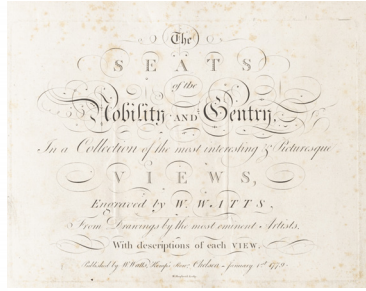 The
SEATS
of the
Nobility AND Gentry,
In a Collection of the most interesting & Picturesque
VIEWS,
Engraved by W. WATTS,
From Drawings by the most eminent Artists,
With descriptions of each VIEW.
Published by W. Watts, Kemp's Row, Chelsea, January 1st 1779.